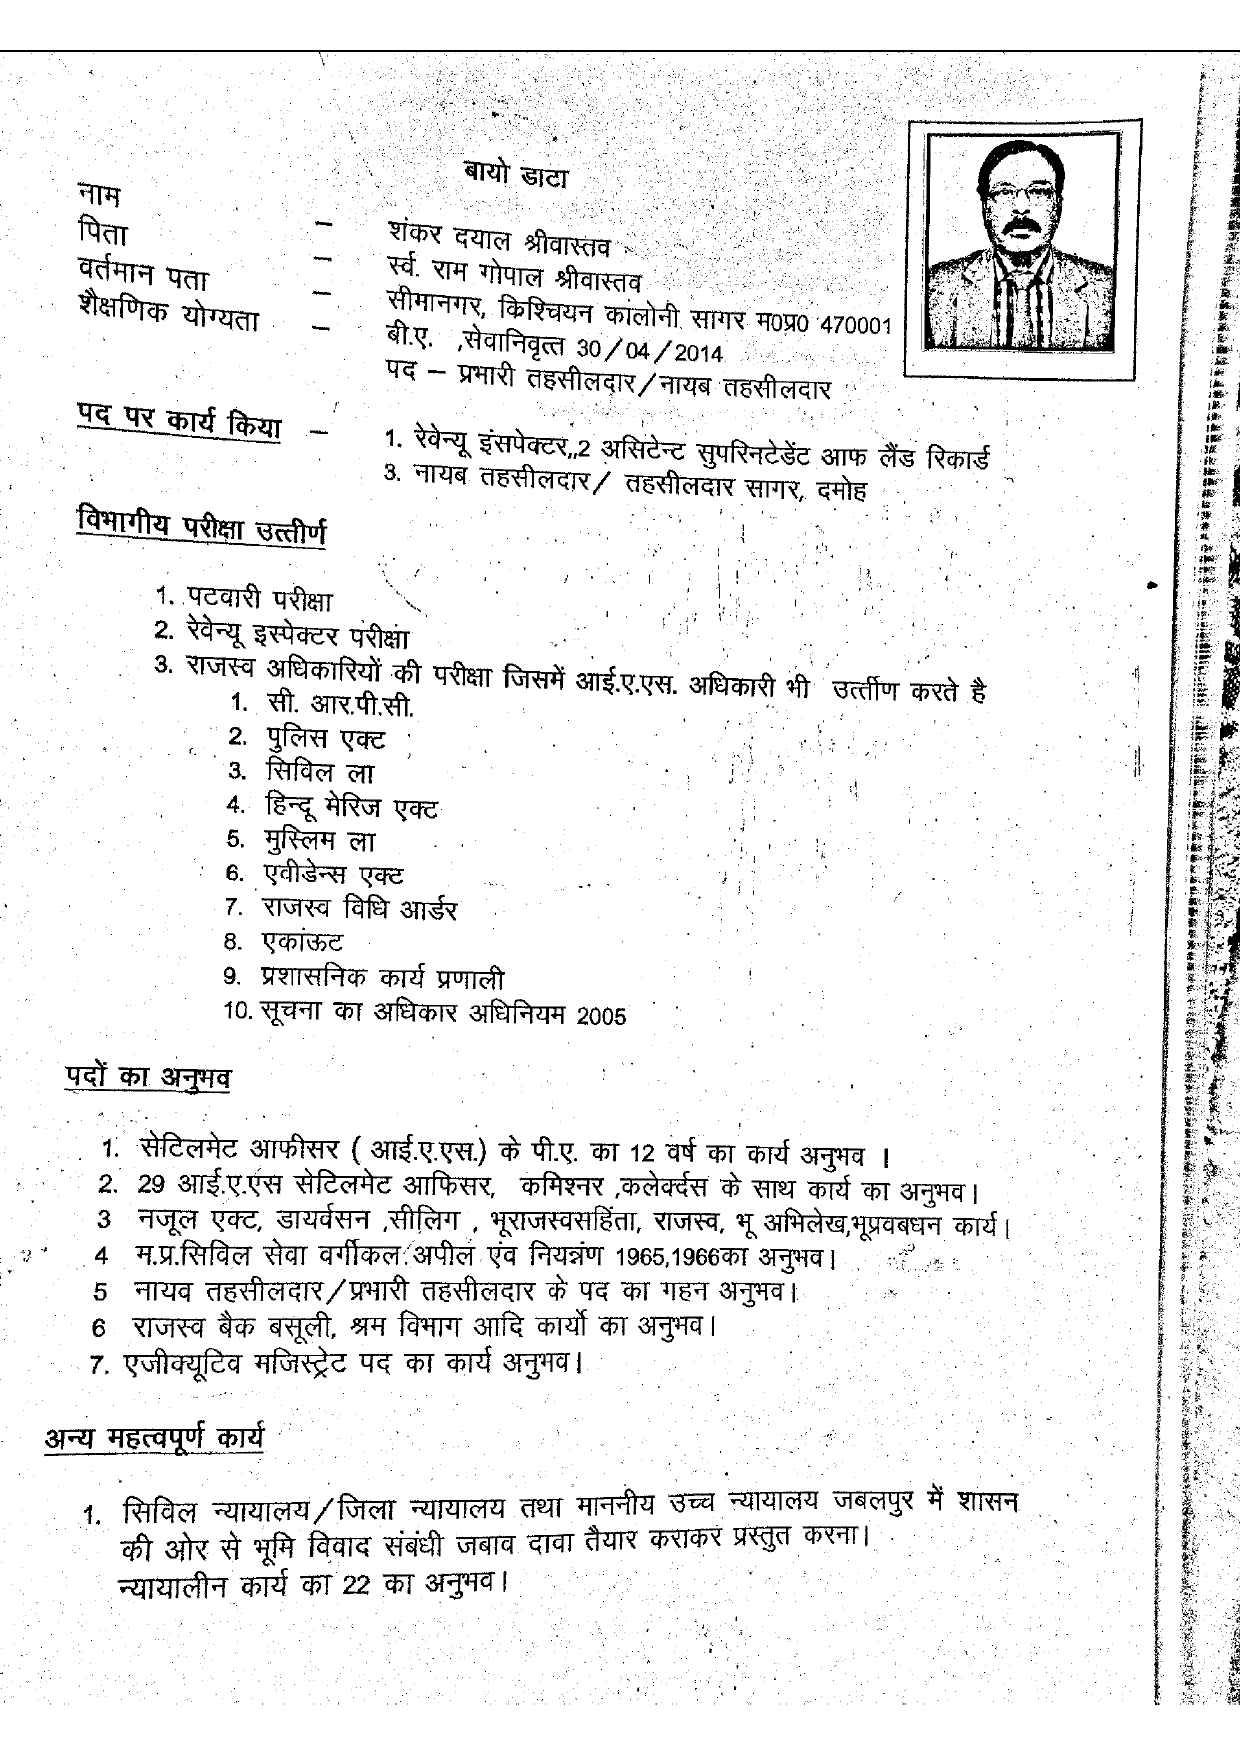 बायो डाटा
नाम – शंकर दयाल श्रीवास्तव
पिता – स्व. राम गोपाल श्रीवास्तव
वर्तमान पता – सीमानगर, किश्चियन कालोनी सागर म0प्र0 470001
शैक्षणिक योग्यता – बी.ए. ,सेवानिवृत्त 30/04/2014
पद – प्रभारी तहसीलदार/नायब तहसीलदार
पद पर कार्य किया – 1. रेवेन्यू इंसपेक्टर,,2 असिटेन्ट सुपरिनटेडेंट आफ लैंड रिकार्ड
3. नायब तहसीलदार/ तहसीलदार सागर, दमोह
विभागीय परीक्षा उत्तीर्ण
1. पटवारी परीक्षा
2. रेवेन्यू इस्पेक्टर परीक्षा
3. राजस्व अधिकारियों की परीक्षा जिसमें आई.ए.एस. अधिकारी भी उर्त्तीण करते है
1. सी. आर.पी.सी.
2. पुलिस एक्ट
3. सिविल ला
4. हिन्दू मेरिज एक्ट
5. मुस्लिम ला
6. एवीडेन्स एक्ट
7. राजस्व विधि आर्डर
8. एकांऊट
9. प्रशासनिक कार्य प्रणाली
10. सूचना का अधिकार अधिनियम 2005
पदों का अनुभव
1. सेटिलमेट आफीसर ( आई.ए.एस.) के पी.ए. का 12 वर्ष का कार्य अनुभव ।
2. 29 आई.ए.एस सेटिलमेट आफिसर, कमिश्नर ,कलेर्क्दस के साथ कार्य का अनुभव।
3 नजूल एक्ट, डायर्वसन ,सीलिग , भूराजस्वसहिंता, राजस्व, भू अभिलेख,भूप्रवबधन कार्य।
4 म.प्र.सिविल सेवा वर्गीकल अपील एंव नियन्त्रंण 1965,1966का अनुभव।
5 नायव तहसीलदार/प्रभारी तहसीलदार के पद का गहन अनुभव।
6 राजस्व बैक बसूली, श्रम विभाग आदि कार्यो का अनुभव।
7. एजीक्यूटिव मजिस्ट्रेट पद का कार्य अनुभव।
अन्य महत्वपूर्ण कार्य
1. सिविल न्यायालय/जिला न्यायालय तथा माननीय उच्च न्यायालय जबलपुर में शासन
की ओर से भूमि विवाद संबंधी जबाव दावा तैयार कराकर प्रस्तुत करना।
न्यायालीन कार्य का 22 का अनुभव।